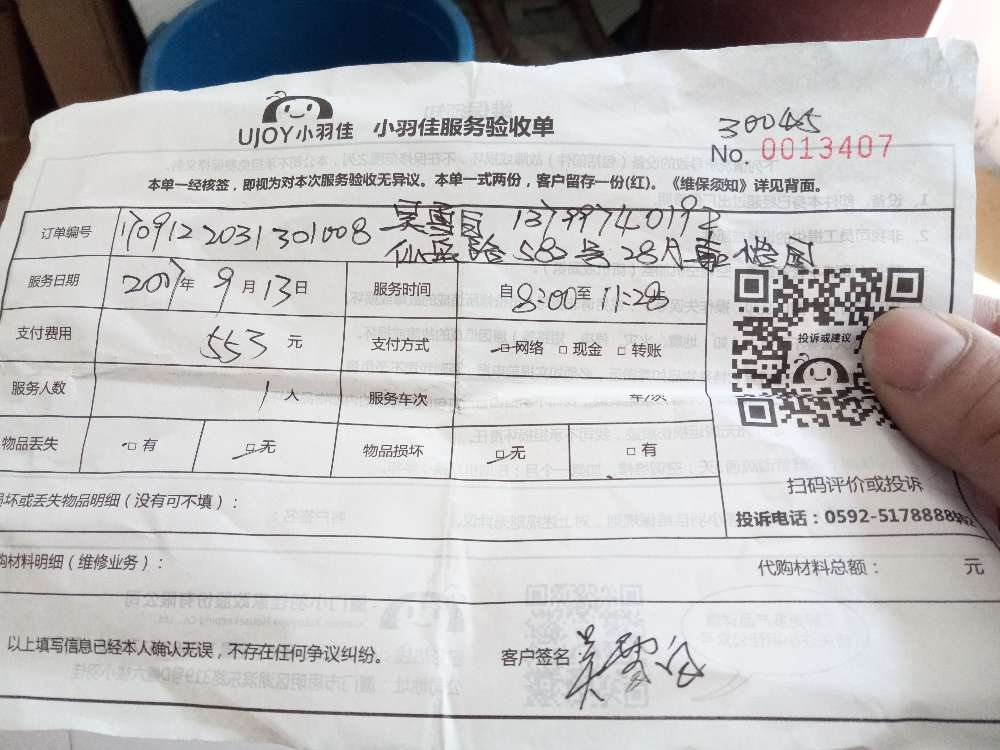 UJOY小羽佳 小羽佳服务验收单
30045
No. 0013407
本单一经核签，即视为对本次服务验收无异议。本单一式两份，客户留存一份(红)。《维保须知》详见背面。
订单编号 1709122031301008
仙岳路 585号
服务日期 2017年 9月13日 服务时间 自8:00至11:28
支付费用 553 元 支付方式 □网络 □现金 □转账
服务人数 1人 服务车次 车/次
物品丢失 □有 □无 物品损坏 □无 □有
投诉或建议
扫码评价或投诉
投诉电话：0592-5178888
坏或丢失物品明细（没有可不填）：
购材料明细（维修业务）： 代购材料总额： 元
以上填写信息已经本人确认无误，不存在任何争议纠纷。 客户签名